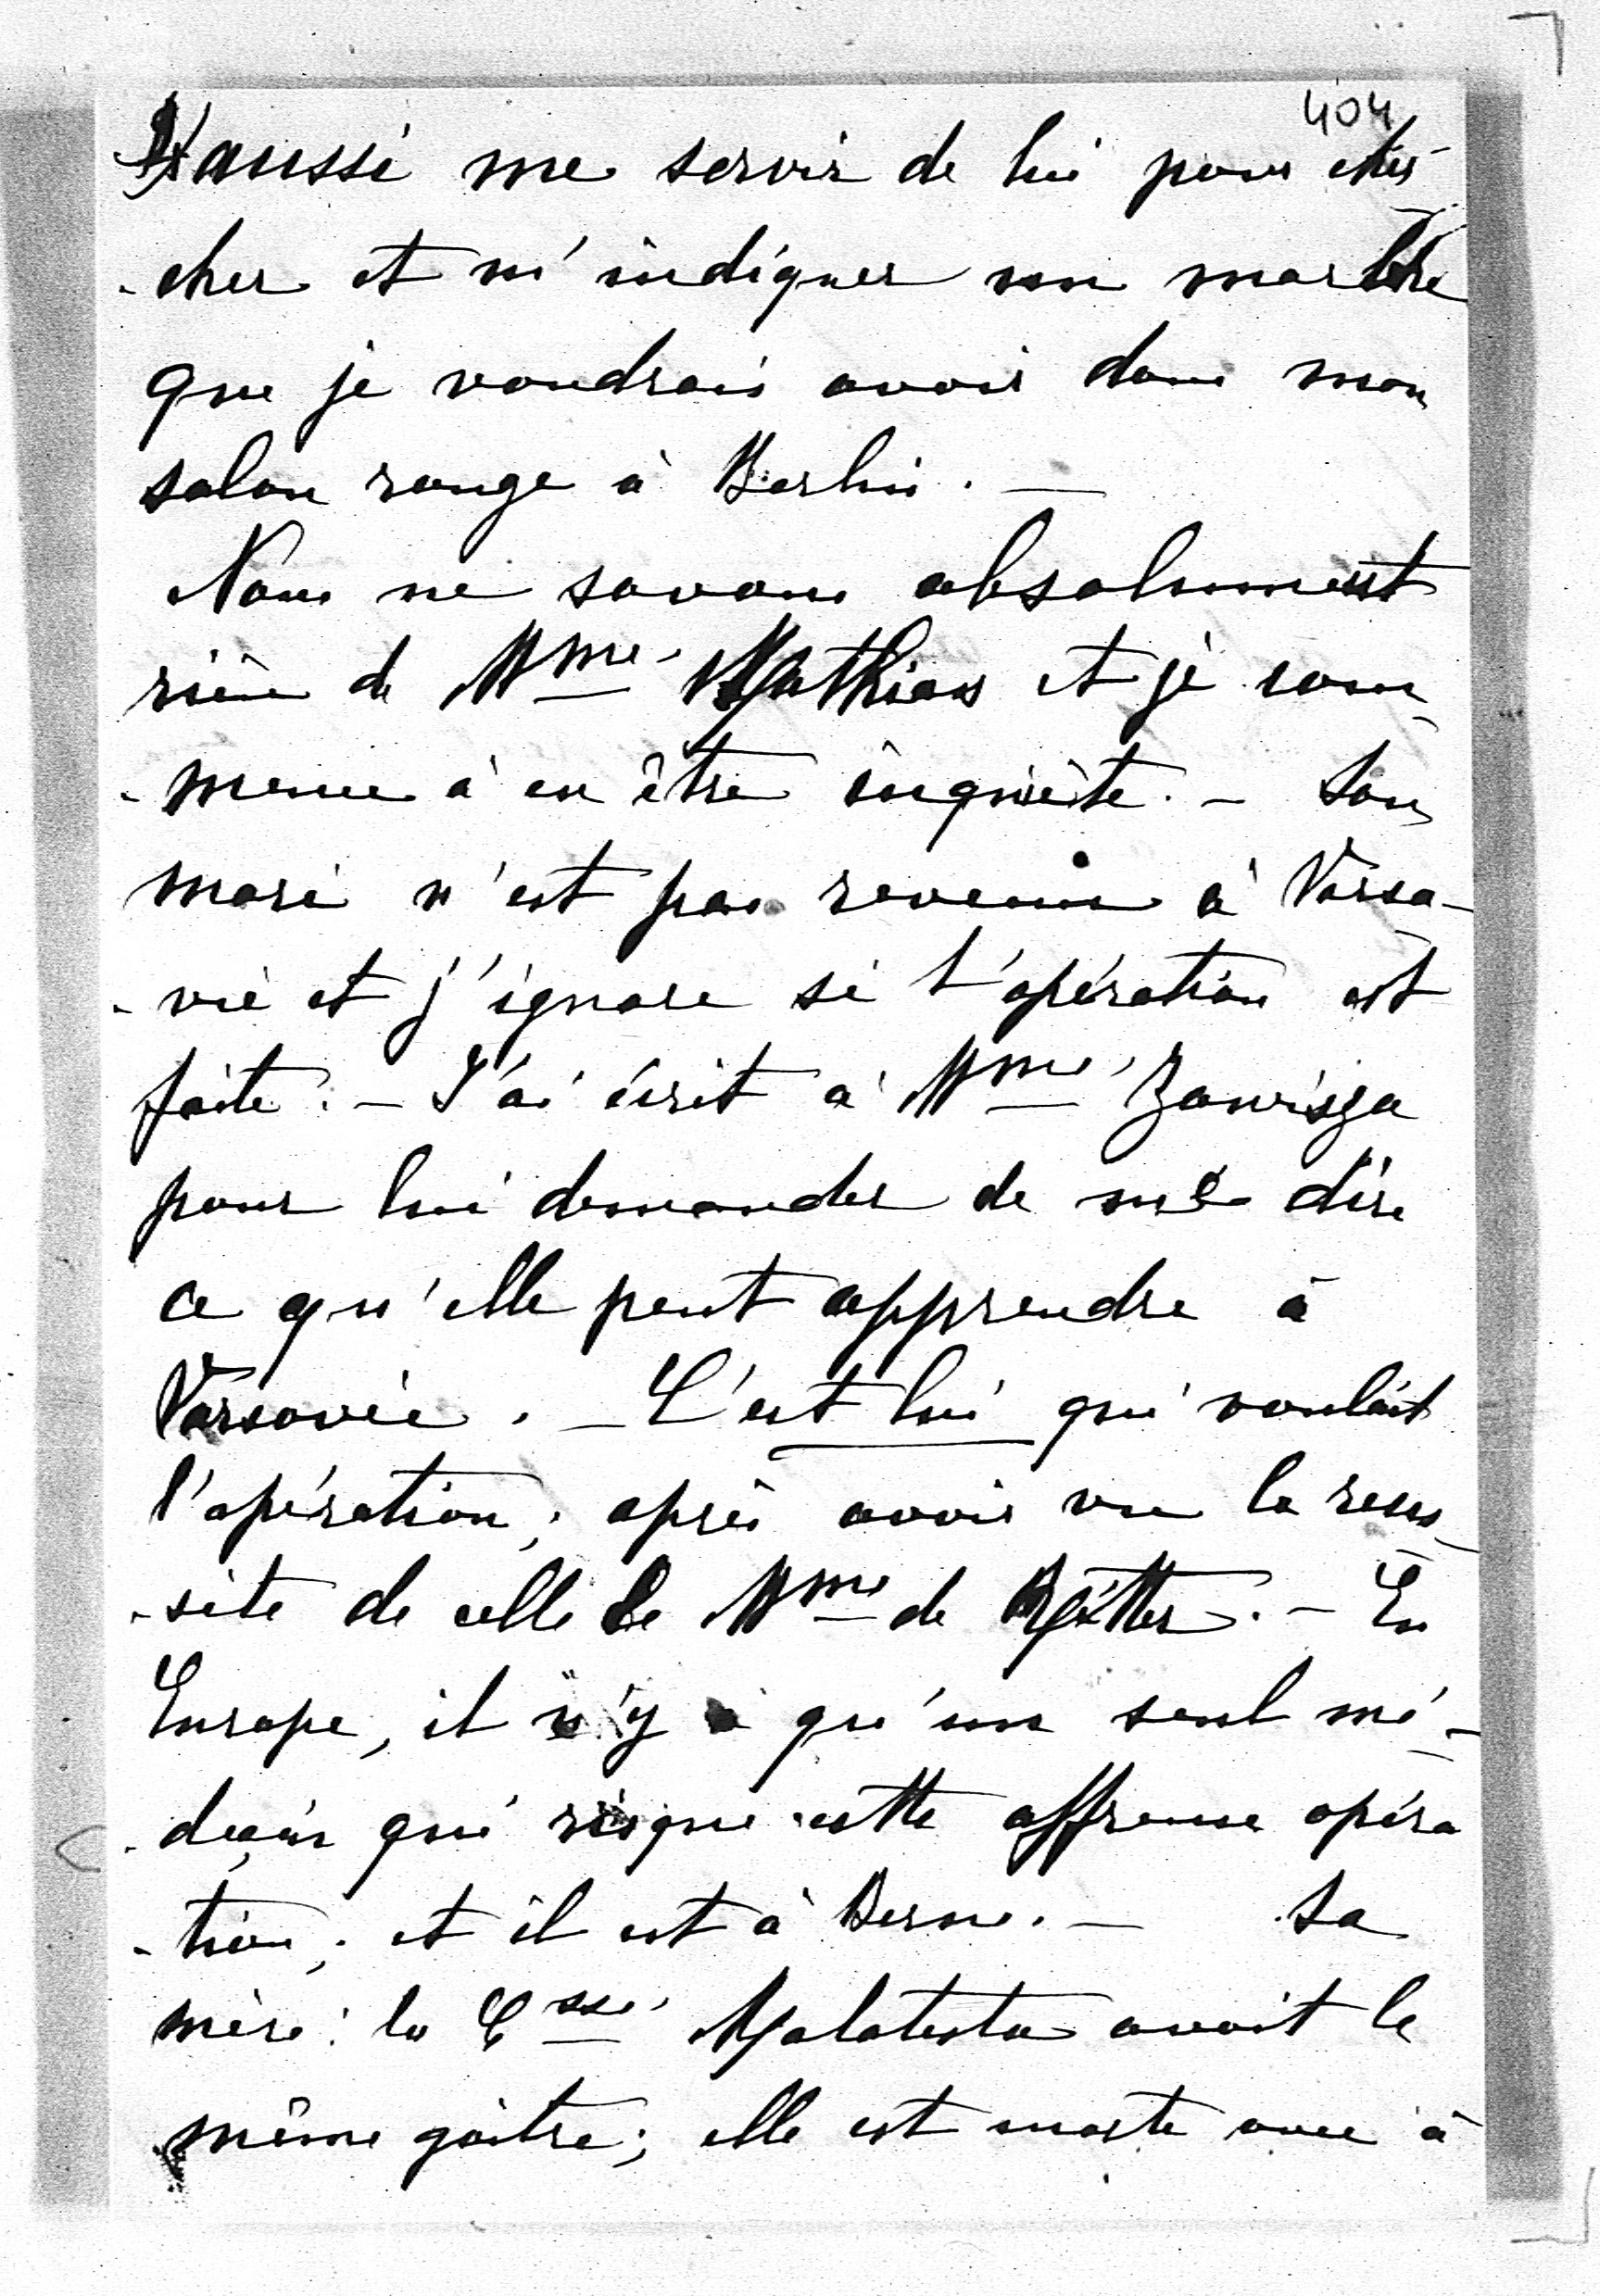 404
aussi me servir de lui pour cher
-cher et m'indiquer un marbre
que je voudrais avoir dans mon
salon rouge à Berlin. —
Nous ne savons absolument
rien de Mme Mathias et je com
-mence à en être inquiète. — Son
mari n'est pas revenu à Varso-
-vie et j'ignore si l'opération est
faite. — J'ai écrit à Mme Zawisza
pour lui demander de me dire
ce qu'elle peut apprendre à
Varsovie. — C'est lui qui voulait
l'opération; après avoir vu la reus
-site de celle de Mme de . — En
Europe, il n'y a qu'un seul mé-
-decin qui risque cette affreuse opéra
-tion; et il est à Berne. — Sa
mère: la Csse Malatesta avait le
même goître; elle est morte avec à